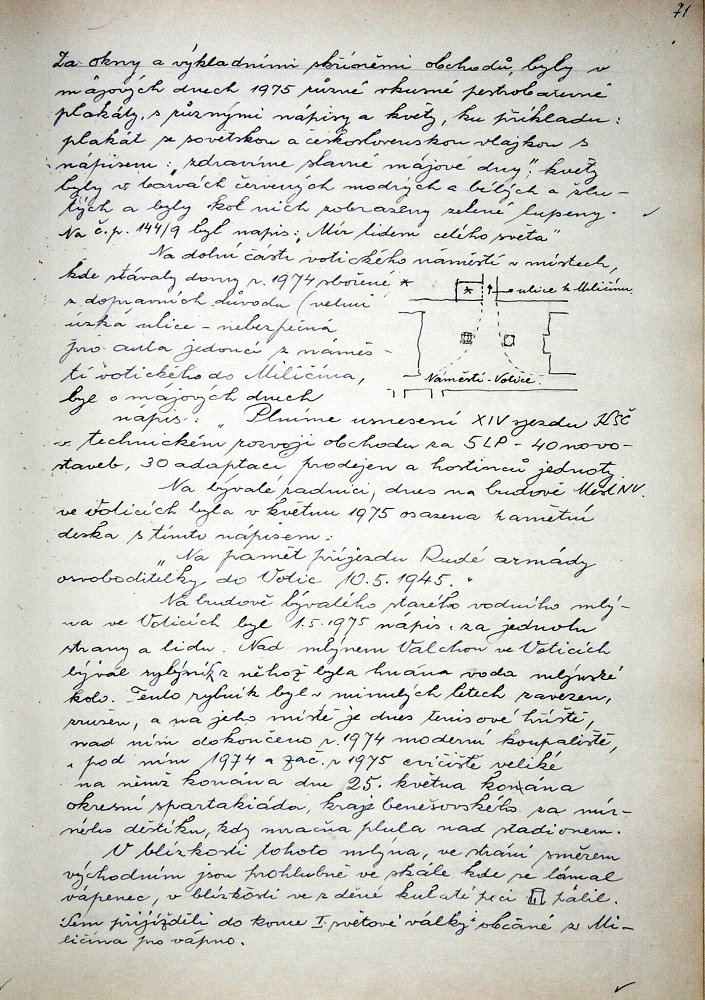 71
Za okny a výkladními skříněmi obchodů, byly v
májových dnech 1975 různé vkusné pestrobarevné
plakáty, s různými nápisy a květy, ku příkladu:
plakát se sovětskou a československou vlajkou s
nápisem: „zdravíme slavné májové dny“, květy
byly v barvách červených modrých a bílých a žlu-
tých a byly kol nich zobrazeny zelené lupeny.
Na č.p. 144/9 byl napis: „Mír lidem celého světa“
Na dolní části votického náměstí v místech,
kde stávaly domy r. 1974 sbořené *
z dopravních důvodu (velmi
úzká ulice - nebezpečná
pro auta jedoucí z náměs-
tí votického do Miličína,
byl o májových dnech
* ulice k Miličínu.
Náměstí - Votice.
nápis: „Plníme usnesení XIV sjezdu KSČ
v. technickém rozvoji obchodu za 5LP - 40 novo-
staveb, 30 adaptací prodejen a hostinců jednoty
Na bývalé radnici, dnes na budově Měst NV.
ve Voticích byla v květnu 1975 osazena pamětní
deska s tímto nápisem:
„Na pamět příjezdu Rudé armády
osvoboditelky do Votic 10.5.1945.“
Na budově bývalého starého vodního mlý-
na ve Voticích byl 1.5.1975 nápis: za jednotu
strany a lidu. Nad mlýnem Valchou ve Voticích
býval rybník z něhož byla hnána voda mlýnské
kolo. Tento rybník byl v minulých letech zavezen,
zrušen, a na jeho místě je dnes tenisové hřiště,
nad ním dokončeno r. 1974 moderní koupaliště,
pod ním 1974 a zač. r 1975 cvičiště veliké
na němž konána dne 25. května konána
okresní spartakiáda, kraje benešovského za mír-
ného deštíku, kdy mračna plula nad stadionem.
V blízkosti tohoto mlýna, ve stráni směrem
východním jsou prohlubně ve skále kde se lámal
vápenec, v blízkosti ve zděné kulaté peci pálil.
Sem přijížděli do konce I. světové války občané z Mi-
ličína pro vápno.